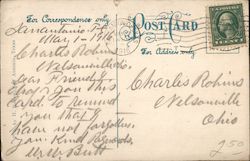 For Correspondence only
POSTCARD
For Address only
San Antonio, Tex
Mar, 7- 1916
Charles Robins
Nelsonville O.
Dear Friend. I
drop you this
card to remind
you that I
have not forgotten
you. Kind Regards,
Charles Robins
Nelsonville
Ohio
250